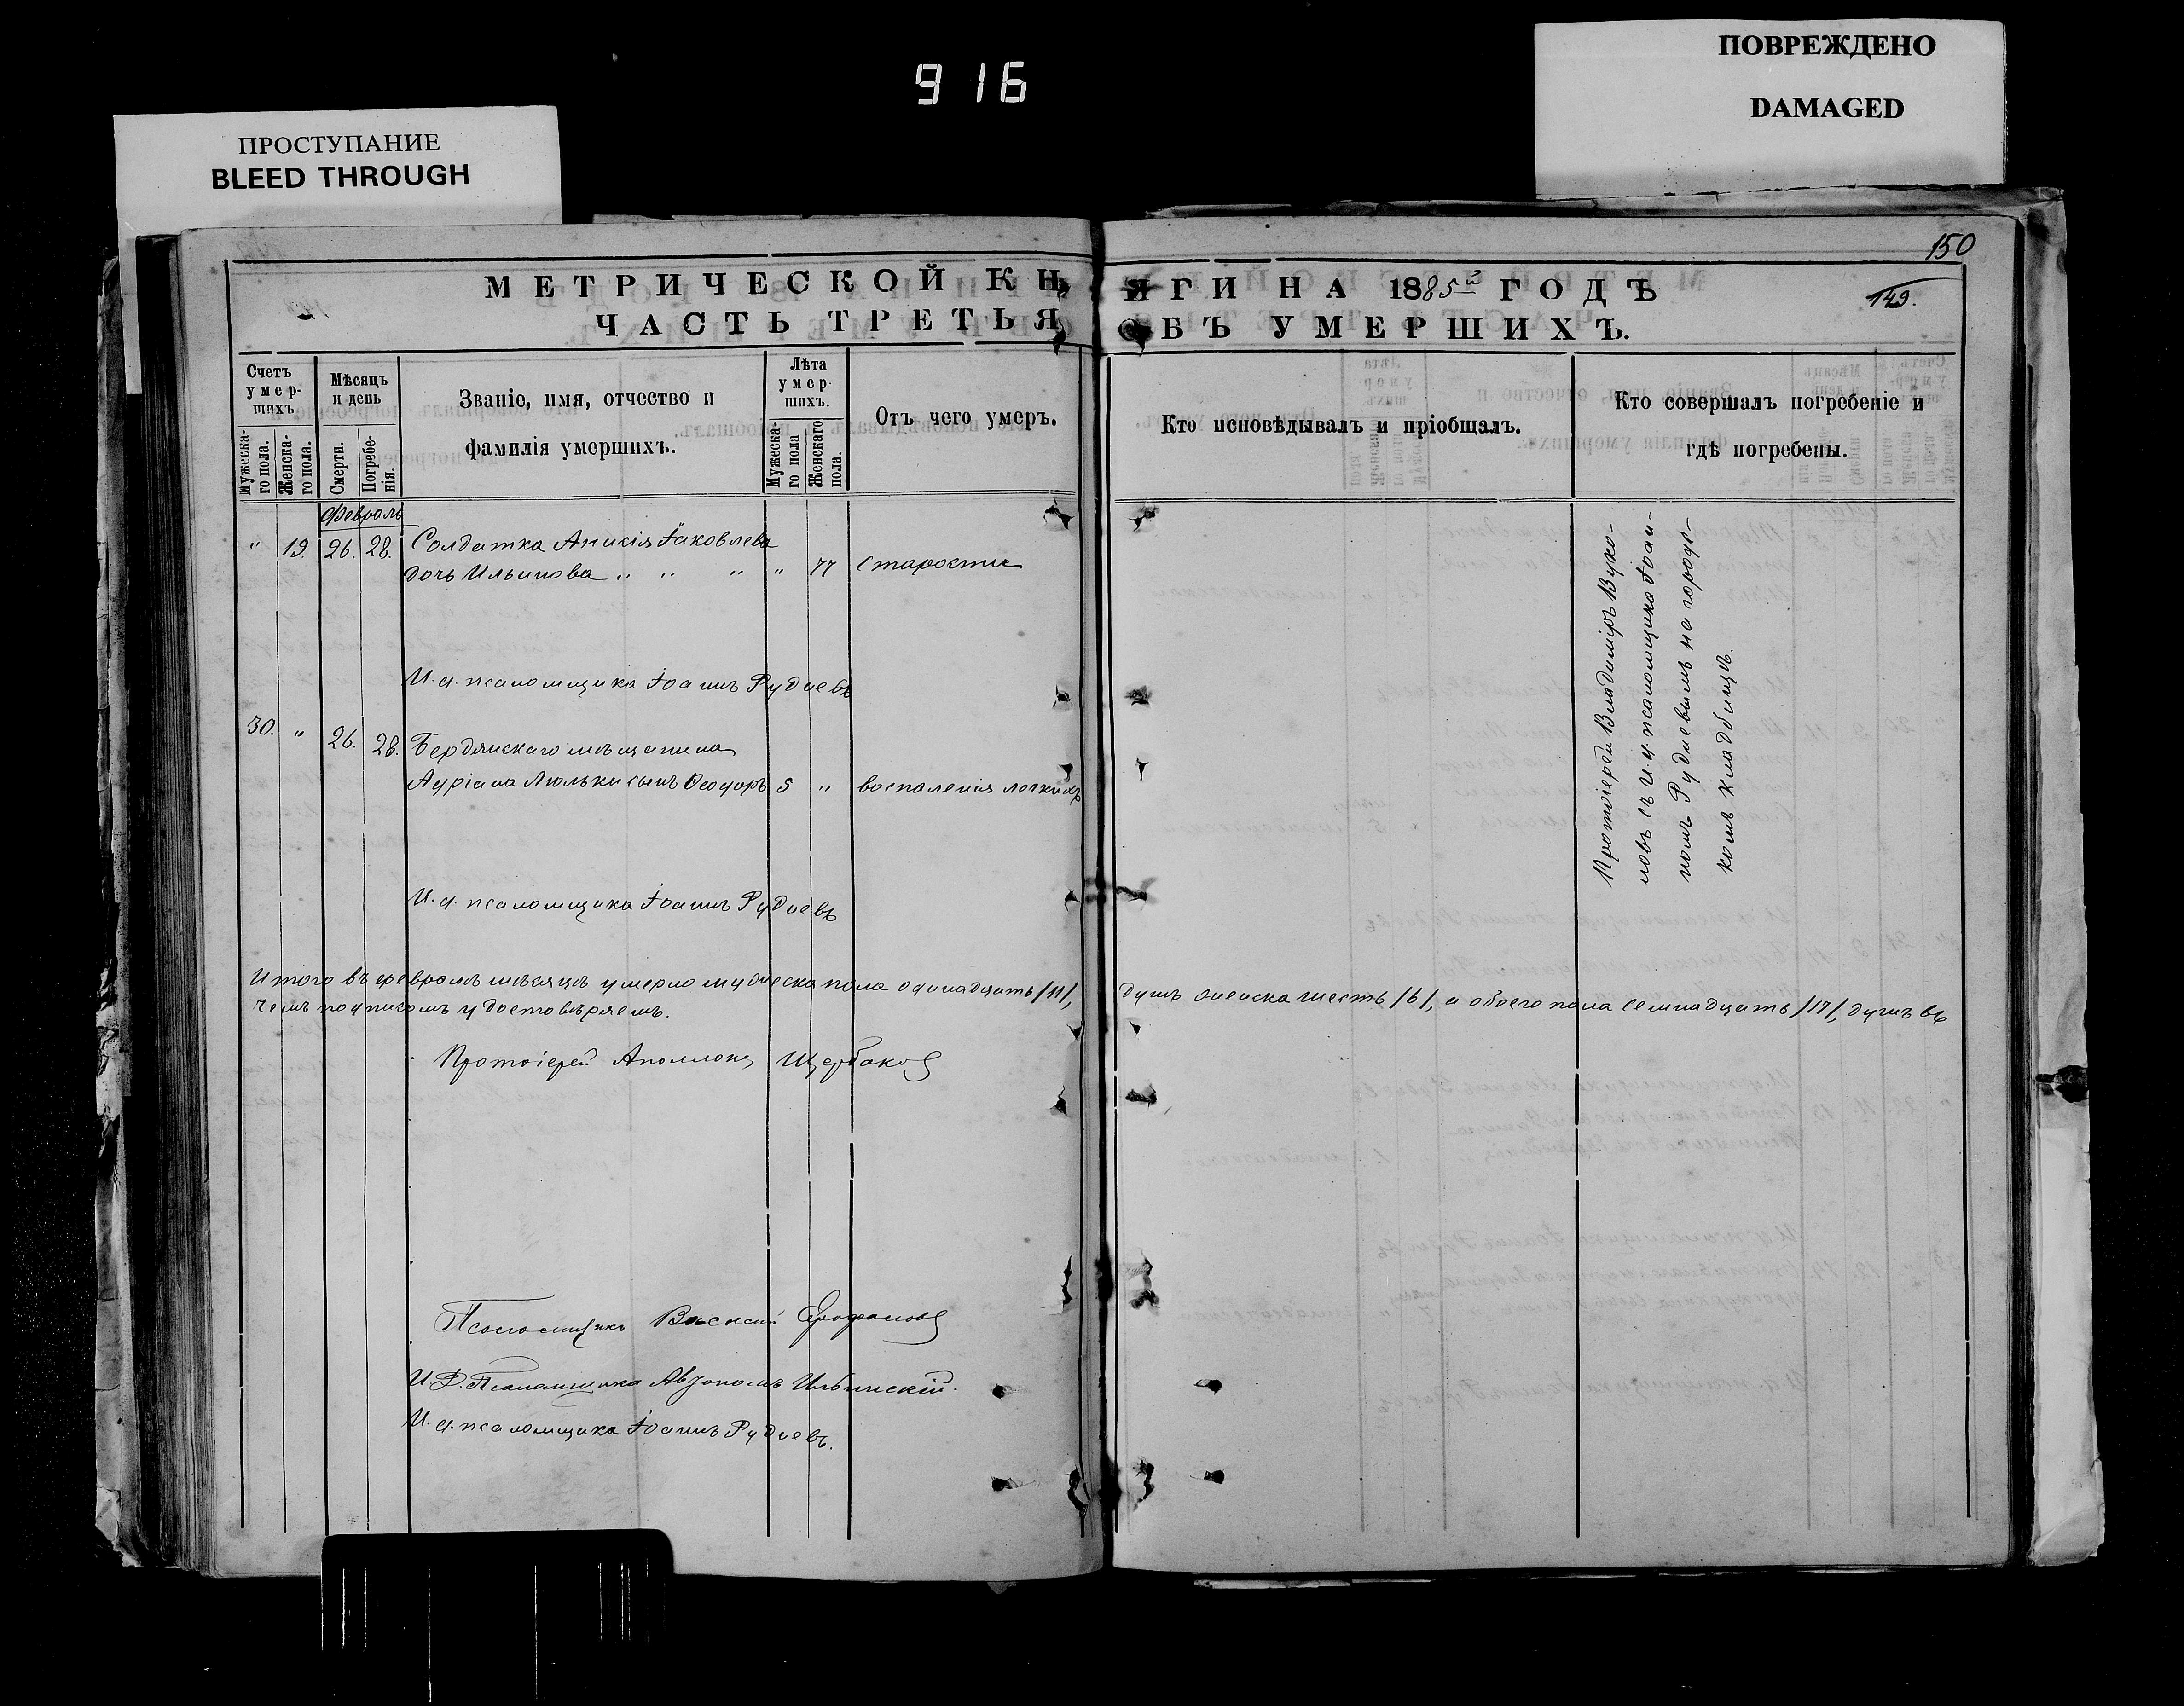 916
ПРОСТУПАНИЕ
BLEED THROUGH
ПОВРЕЖДЕНО
DAMAGED
150
149.
МЕТРИЧЕСКОЙ КНИГИ НА 1885й ГОДЪ
ЧАСТЬ ТРЕТЬЯ, ОБЪ УМЕРШИХЪ.
Счетъ умер-шихъ.
Мужеска-го пола.
Женска-го пола.
Мѣсяцъ и день
Смерти.
Погребе-нія.
Званіе, имя, отчество и
фамилія умершихъ.
Лѣта умер-шихъ.
Мужеска-го пола
Женскаго пола.
Отъ чего умеръ.
Кто исповѣдывалъ и пріобщалъ.
Кто совершалъ погребеніе и
гдѣ погребены.
Февраль
" 19. 26. 28. Солдатка Анисія Іаковлева
дочь Ильинова " " " " 77 старости
И. д. псаломщика Іоаннъ Рудневъ
30. " 26. 28. Бердянскаго мѣщанина
Адріана Люльки сынъ Ѳеодоръ 5 " воспаленія легкихъ
И. д. псаломщика Іоаннъ Рудневъ
Протоіерей Владиміръ Вуко-
новъ съ и. д. псаломщика Іоан-
номъ Рудневымъ на городс-
комъ кладбищѣ.
Итого въ февралѣ мѣсяцѣ умерло мужеска пола одинадцать /11/, душъ женска шесть /6/, а обоего пола семнадцать /17/, душъ въ
чемъ подписомъ удостовѣряемъ.
Протоіерей Аполлонъ Щербаковъ
Псаломщикъ Василій
И. Д. Псаломщика Автономъ Ильинскій.
И. д. псаломщика Іоаннъ Рудневъ.